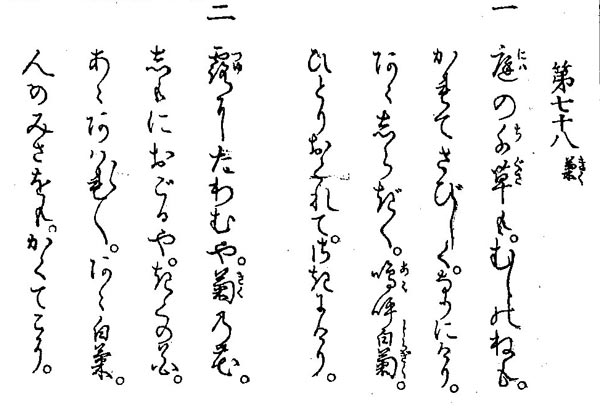 第七十八 菊
一 庭の千草も。むしのねも。
かれてさびしく。なりにけり。
あゝしらぎく。嗚呼白菊。
ひとりおくれて。さきにけり。
二 露にたわむや。菊の花。
しもにおごるや。きくの花。
あゝあはれ〱。あゝ白菊。
人のみさをも。かくてこそ。